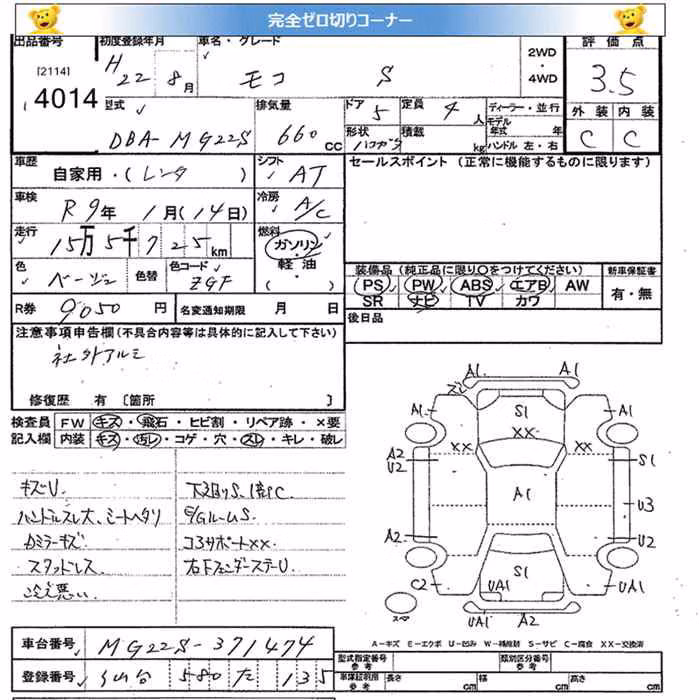 完全ゼロ切りコーナー
出品番号 初度登録年月 車名・グレード 評価点
[2114] H22年 8月 モコ S 2WD・4WD 3.5
4014
型式 排気量 ドア 5 定員 4人 ディーラー・並行 外装 内装
DBA-MG22S 660cc 形状 ハッチバック 積載 kg モデル年式 年 ハンドル 左・右 C C
車歴 自家用・(レンタ) シフト AT セールスポイント(正常に機能するものに限ります)
車検 R9年 1月(14日) 冷房 A/C
走行 15万5千725km 燃料 ガソリン・軽油・( )
色 ベージュ 色替 色コード ZGF
装備品(純正品に限り○をつけてください) 新車保証書
PS PW ABS エアB AW 有・無
SR ナビ TV カワ
R券 9050円 名変通知期限 月 日
後日品
注意事項申告欄(不具合内容等は具体的に記入して下さい)
社外アルミ
修復歴 有 〔箇所 〕
検査員 FW キズ・飛石・ヒビ割・リペア跡・×要
記入欄 内装 キズ・汚レ・コゲ・穴・スレ・キレ・破レ
キズU. 下廻りS、1部C
ハンドルスレ大、シートヘタリ E/GルームS
カミラーキズ コアサポートXX
スタッドレス 右Fフェンダーステー U
冷え悪い
A1 A1
ズレ
A1 S1 A1
XX XX XX
A2 S1
U2
A1
U3
A2 U2
C2 S1 UA1
UA1
スペア UA1 A2
A-キズ E-エクボ U-凹み W-補修跡 S-サビ C-腐食 XX-交換済
車台番号 MG22S-371474
登録番号 仙台 580 た 135
型式指定番号 類別区分番号
参考 参考
車庫証明用 長さ 幅 高さ
参考 cm cm cm